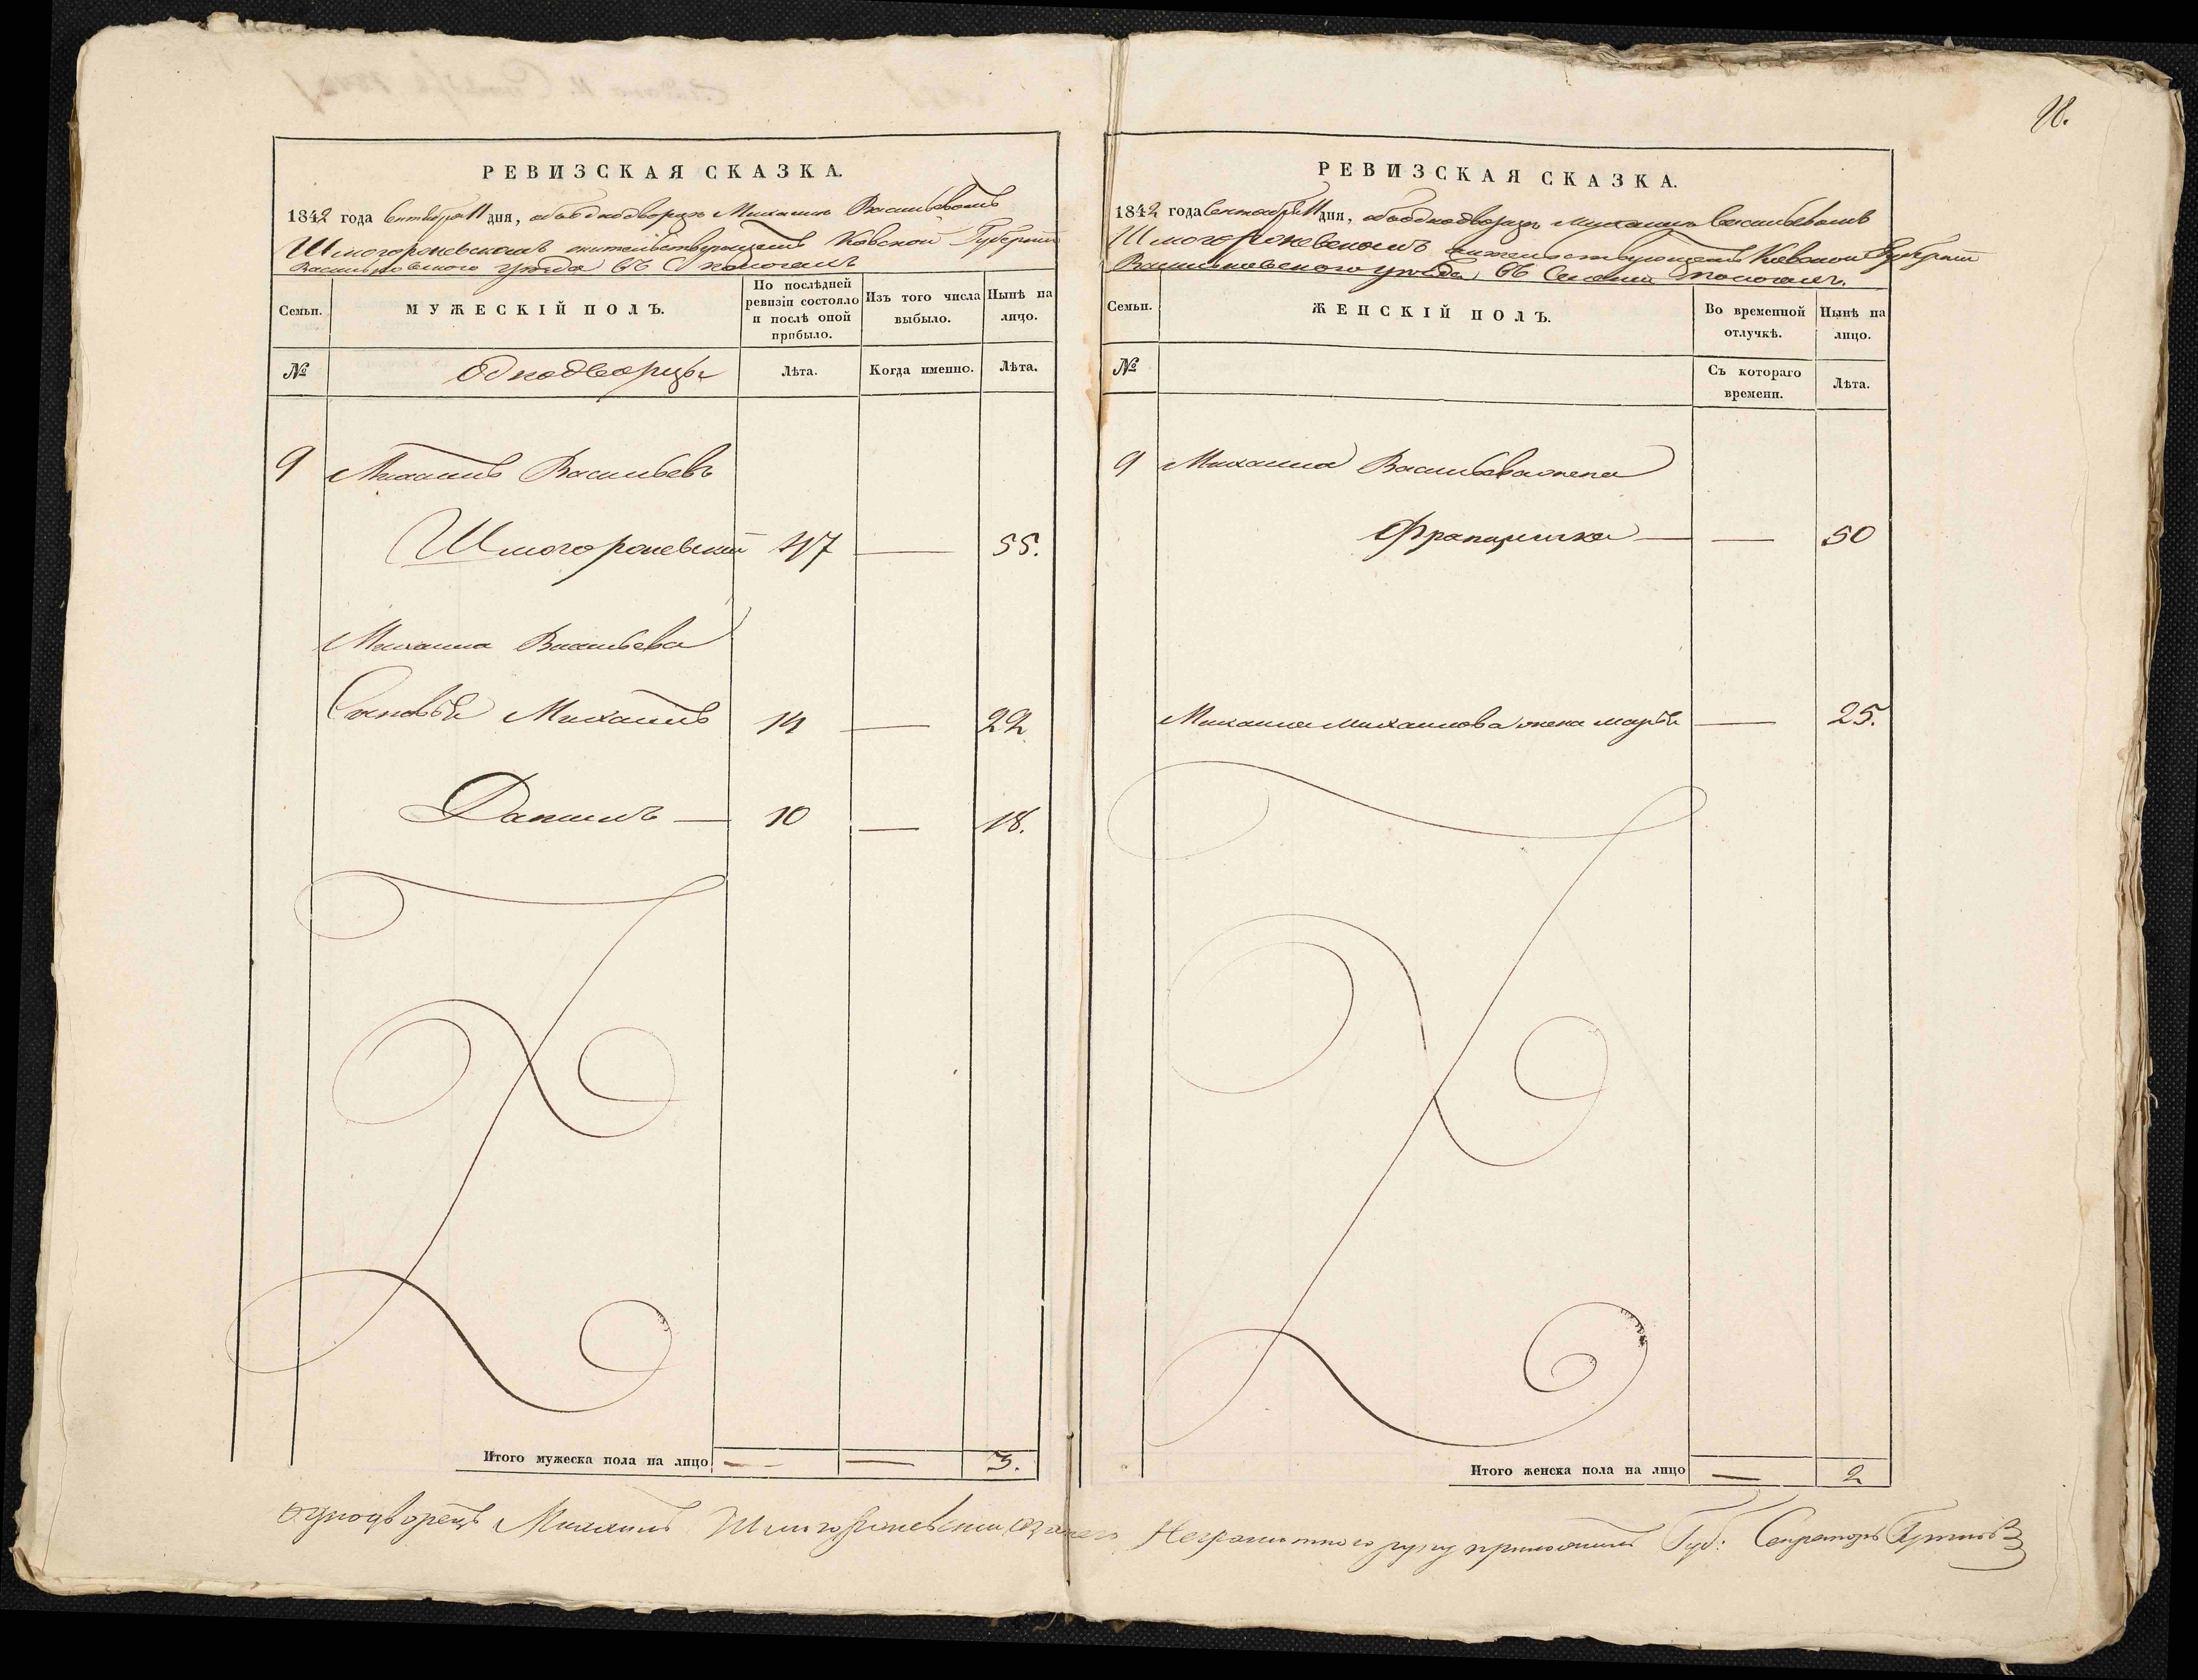 98.
РЕВИЗСКАЯ СКАЗКА.
1842 года Сентября 11 дня, объ однодворцѣ Михаилѣ Васильевомъ
Шмогоржевскомъ жительствующемъ Кіевской Губерніи
Васильковскаго уѣзда въ С.
Семьи.
МУЖЕСКІЙ ПОЛЪ.
По послѣдней ревизіи состояло и послѣ оной прибыло.
Изъ того числа выбыло.
Нынѣ на лицо.
№
Однодворцы
Лѣта.
Когда именно.
Лѣта.
9 Михаилъ Васильевъ
Шмогоржевскій 47 — 55.
Михаила Васильева
Сыновья Михаилъ 14 — 22
Данилъ — 10 — 18.
Итого мужеска пола на лицо — — 3.
РЕВИЗСКАЯ СКАЗКА.
1842 года Сентября 11 дня, объ однодворцѣ Михаилѣ Васильевомъ
Шмогоржевскомъ жительствующемъ Кіевской Губерніи
Васильковскаго уѣзда, въ Селеніи
Семьи.
ЖЕНСКІЙ ПОЛЪ.
Во временной отлучкѣ.
Нынѣ на лицо.
№
Съ котораго времени.
Лѣта.
9 Михаила Васильева жена
Францишка — — 50
Михаила Михаилова жена Марья — 25.
Итого женска пола на лицо — 2
Однодворецъ Михаилъ Шмогоржевскій, а за него Неграмотнаго руку приложилъ Губ: Секретарь